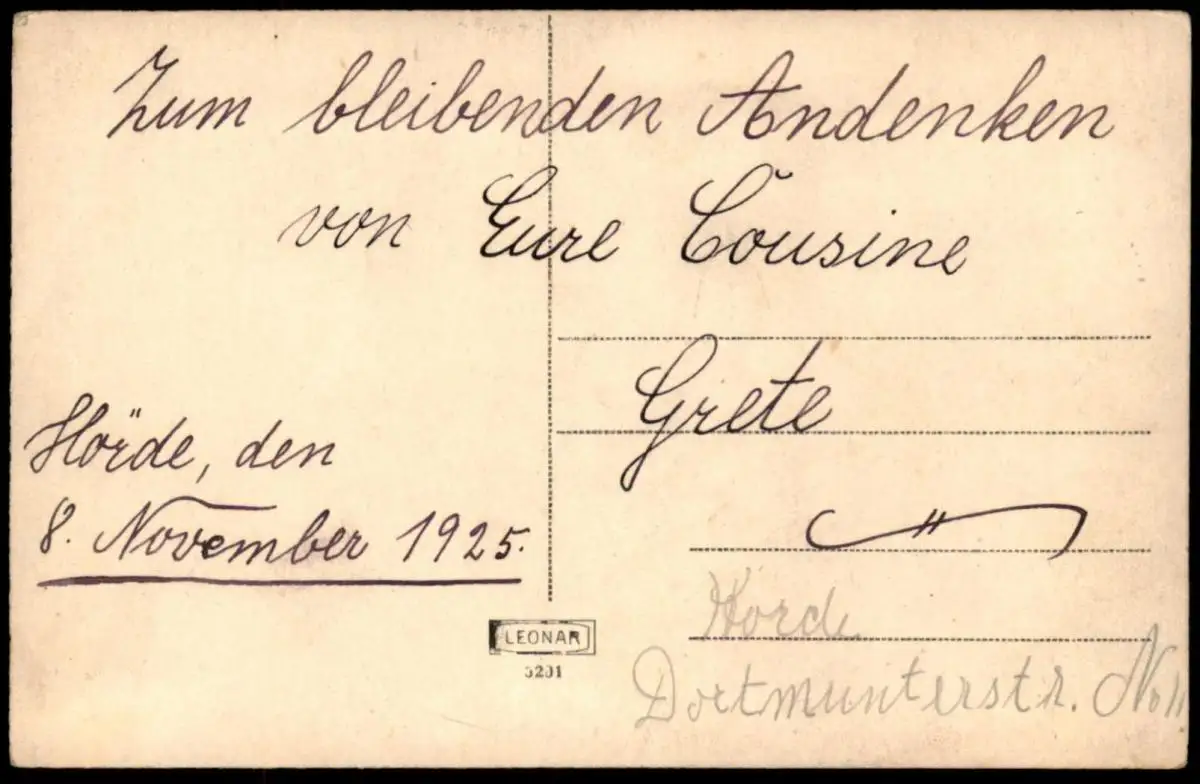 Zum bleibenden Andenken
von Eure Cousine
Grete
Hörde, den
8. November 1925.
LEONAR
Horde
Dortmunterstr. No